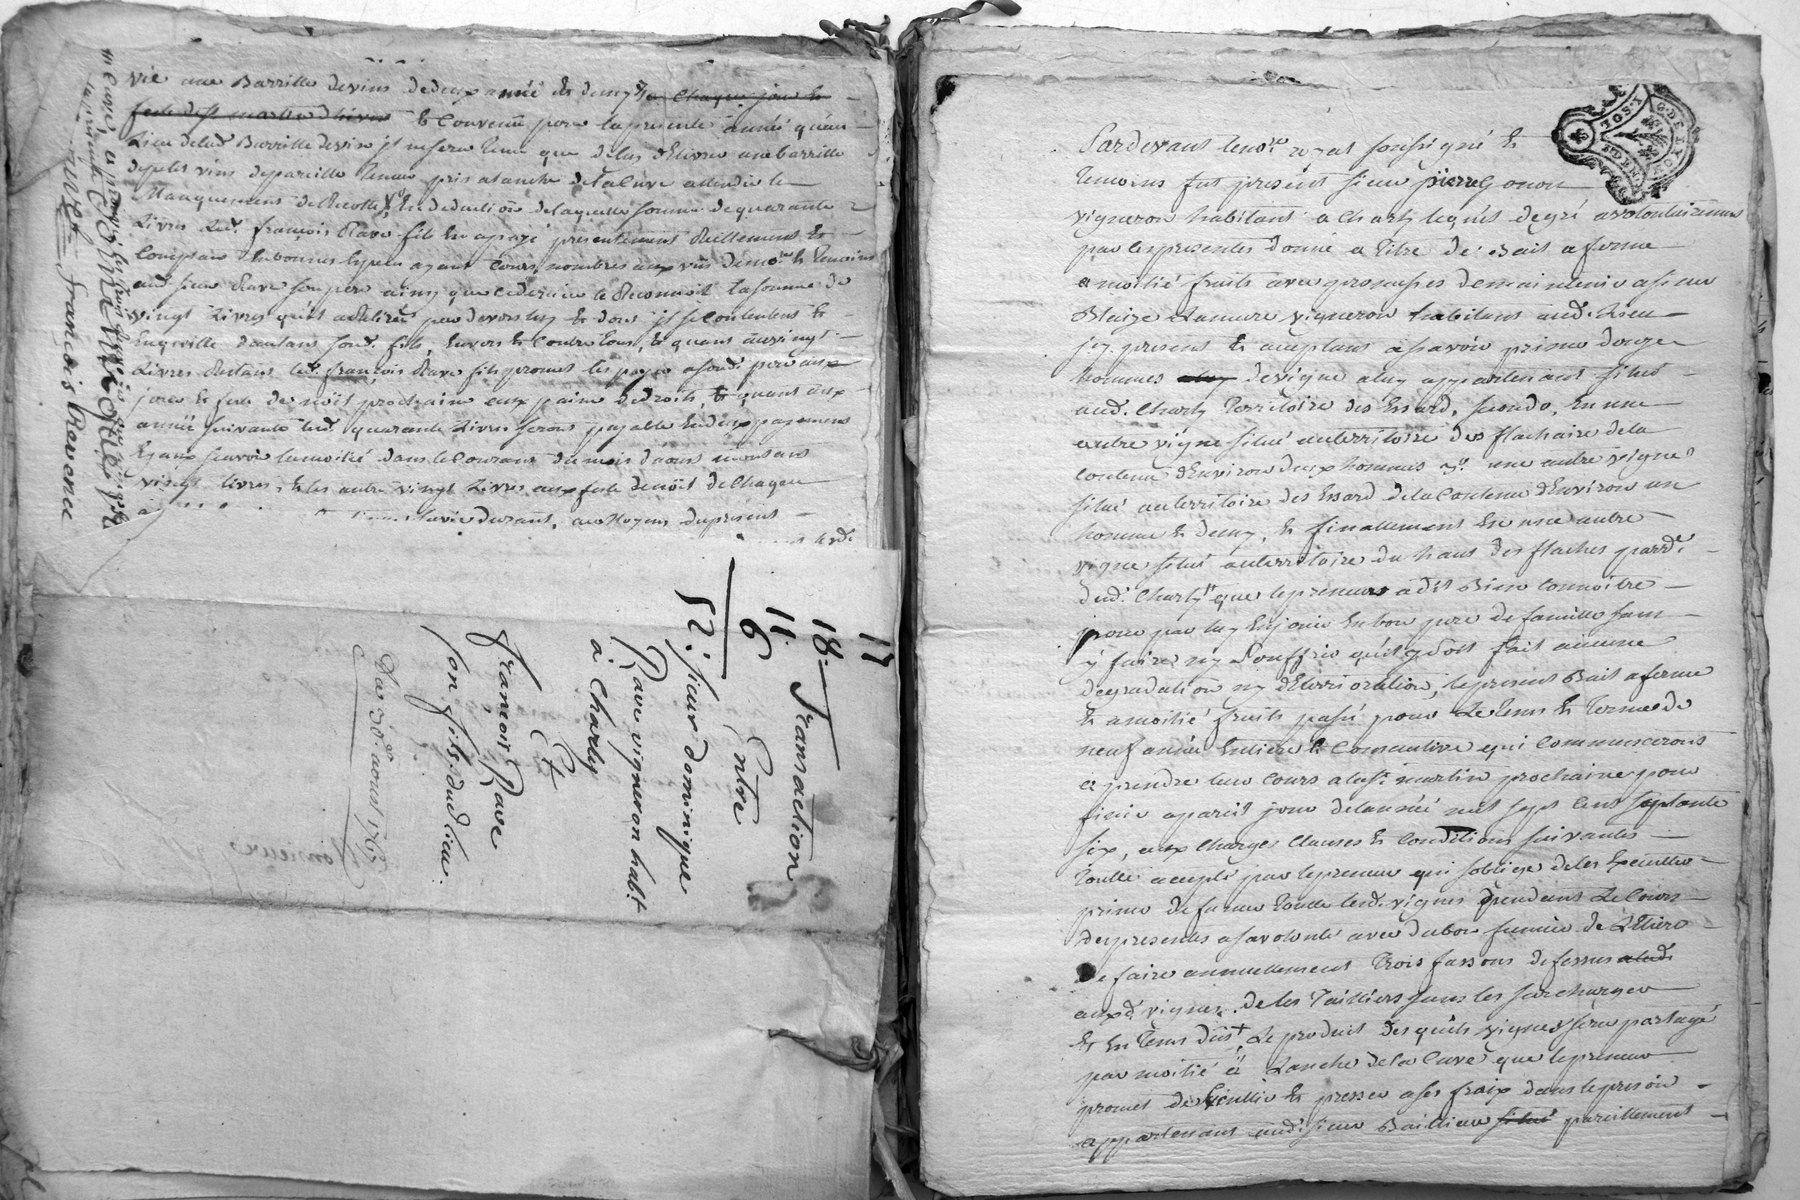 vie une Barrille de vins de deux année et demy a chaque jour et
feste de st martin d'hiver et convenu pour la presente année qu'au
Lieu de lad. Barrille de vin il ne sera tenu que de luy delivrer une barrille
de petit vins de pareille teneur pris a lanche de la Cuve attendu le
Manquement de Recolte, En deduction de laquelle somme de quarante
Livres led. françois Rave fils En a payé presentement Réellement et
Comptant En bonnes Especes ayant Cours nombrées aux vûs de no.re et temoins
aud. sieur Rave son pere ainsy que ce dernier le Reconnoit la somme de
vingt Livres qu'il a Retiré par devers luy et dont il se Contente et
En quitte d'autant sond. fils, Envers et Contre tous, et quant aux vingt
Livres Restant led. françois Rave fils promet les payer a sond. pere aux
jour et feste de noël prochaine aux peine de droits, et quant aux
année suivante led. quarante Livres seront payable En deux payements
Egaux sçavoir la moitié dans le Courant du mois d'aoust montant
vingt livres, et les autre vingt Livres aux feste de noël de Chaque
la vie durant, au Moyen du present
françois Reverence
17
18
11
6
52:
Transaction
Entre
sieur dominique
Rave vigneron habit.
a Charly
Et
francois Rave
son fils dud. lieu:
Du 30.e aoust 1767
Monsieur
Pardevant le no.re royal soussigné et
temoins fut present sieur pierre Gonon
vigneron habitant a Charly lequel de gré a volontairement
par les presentes donné a titre de Bail a ferme
a moitié fruits avec promesses de maintenir a sieur
Blaize Lamure vigneron habitant aud. Lieu
icy present et acceptant asçavoir primo douze
hommes de vigne a luy appartenant situé
aud. Charly Territoire des Essard, secondo, En une
autre vigne situé au territoire des flachaire de la
Contenue d'Environ deux hommes, 3.o une autre vigne
situé au territoire des Essard de la Contenue d'Environ un
homme et demy, et finallement En une autre
vigne situé au territoire du haut des flaches parr.e
dud. Charly que le preneur a dit Bien Connoitre
pour par luy En jouir En bon pere de famille sans
y faire ny souffrir qu'il y soit fait aucune
degradation ny deterrioration, le present Bail a ferme
et a moitié fruits passé pour Le tems et Terme de
neuf année Entiere et Consecutive qui Commencerons
a prendre leur Cours a la st martin prochaine pour
finir a pareil jour de l'année mil sept Cent septante
six, aux Charges Clauses et Conditions suivantes
toutte accepté par le preneur qui s'oblige de les Executter
primo de fumer toutte lesd. vignes pendant Le Cours
des presentes a sa volonté avec du bon fumier de Littiere
De faire annuellement Trois fassons de fessus
auxd. vignes. de les Tailliers sans les surcharger
et En tems dû Le produit desquels vignes sera partagé
par moitié a Lanche de la Cuve que le preneur
promet de Ceuillir et presser a ses fraix dans le presoir
appartenant aud. sieur Bailleur situé pareillement